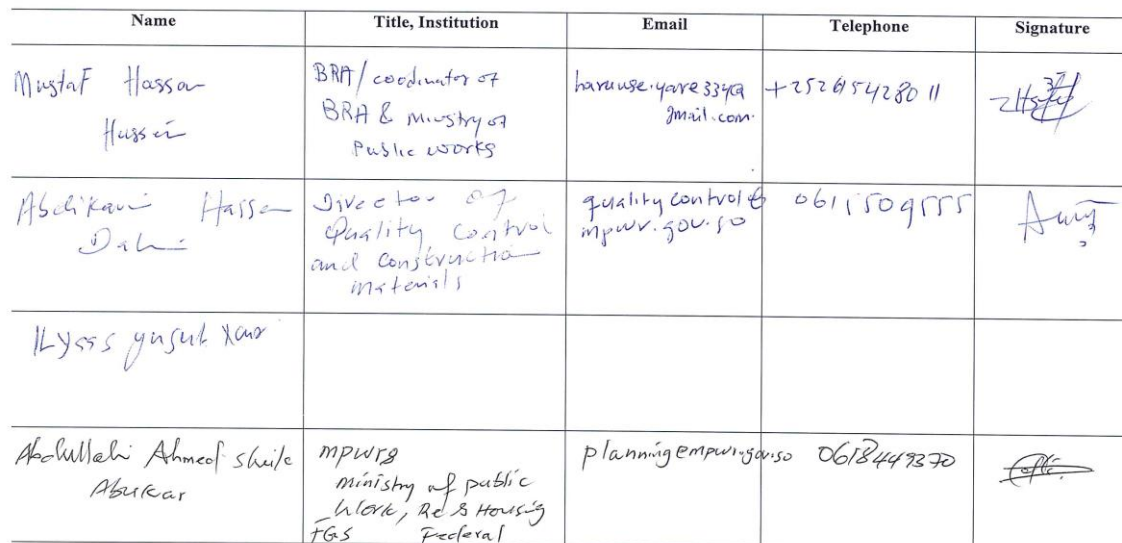 Name Title, Institution Email Telephone Signature
Mustaf Hassan
Hussein
BRA/coodinator of
BRA & Ministry of
Public works
gmail.com.
+252615428011
Abdikarin Hassan
Director of
Quality Control
and construction
materials
qualitycontrol@
mpwr.gov.so
0611509555
ILyaas yusuf
Abdullahi Ahmed
Abukar
mpwr&
ministry of public
Work, Re & Housing
FGS Federal
planning@mpwr.gov.so
0618449370